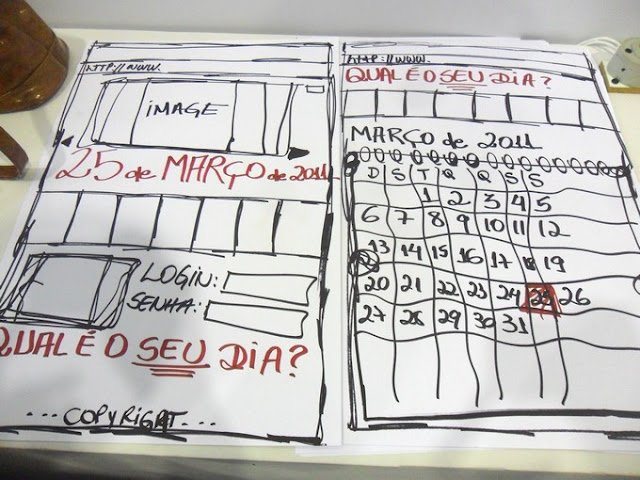 HTTP://WWW.
IMAGE
25 de MARÇO de 2011
LOGIN:
SENHA:
QUAL É O SEU DIA?
... COPYRIGHT...
HTTP://WWW.
QUAL É O SEU DIA?
MARÇO de 2011
D S T Q Q S S
1 2 3 4 5
6 7 8 9 10 11 12
13 14 15 16 17 18 19
20 21 22 23 24 25 26
27 28 29 30 31